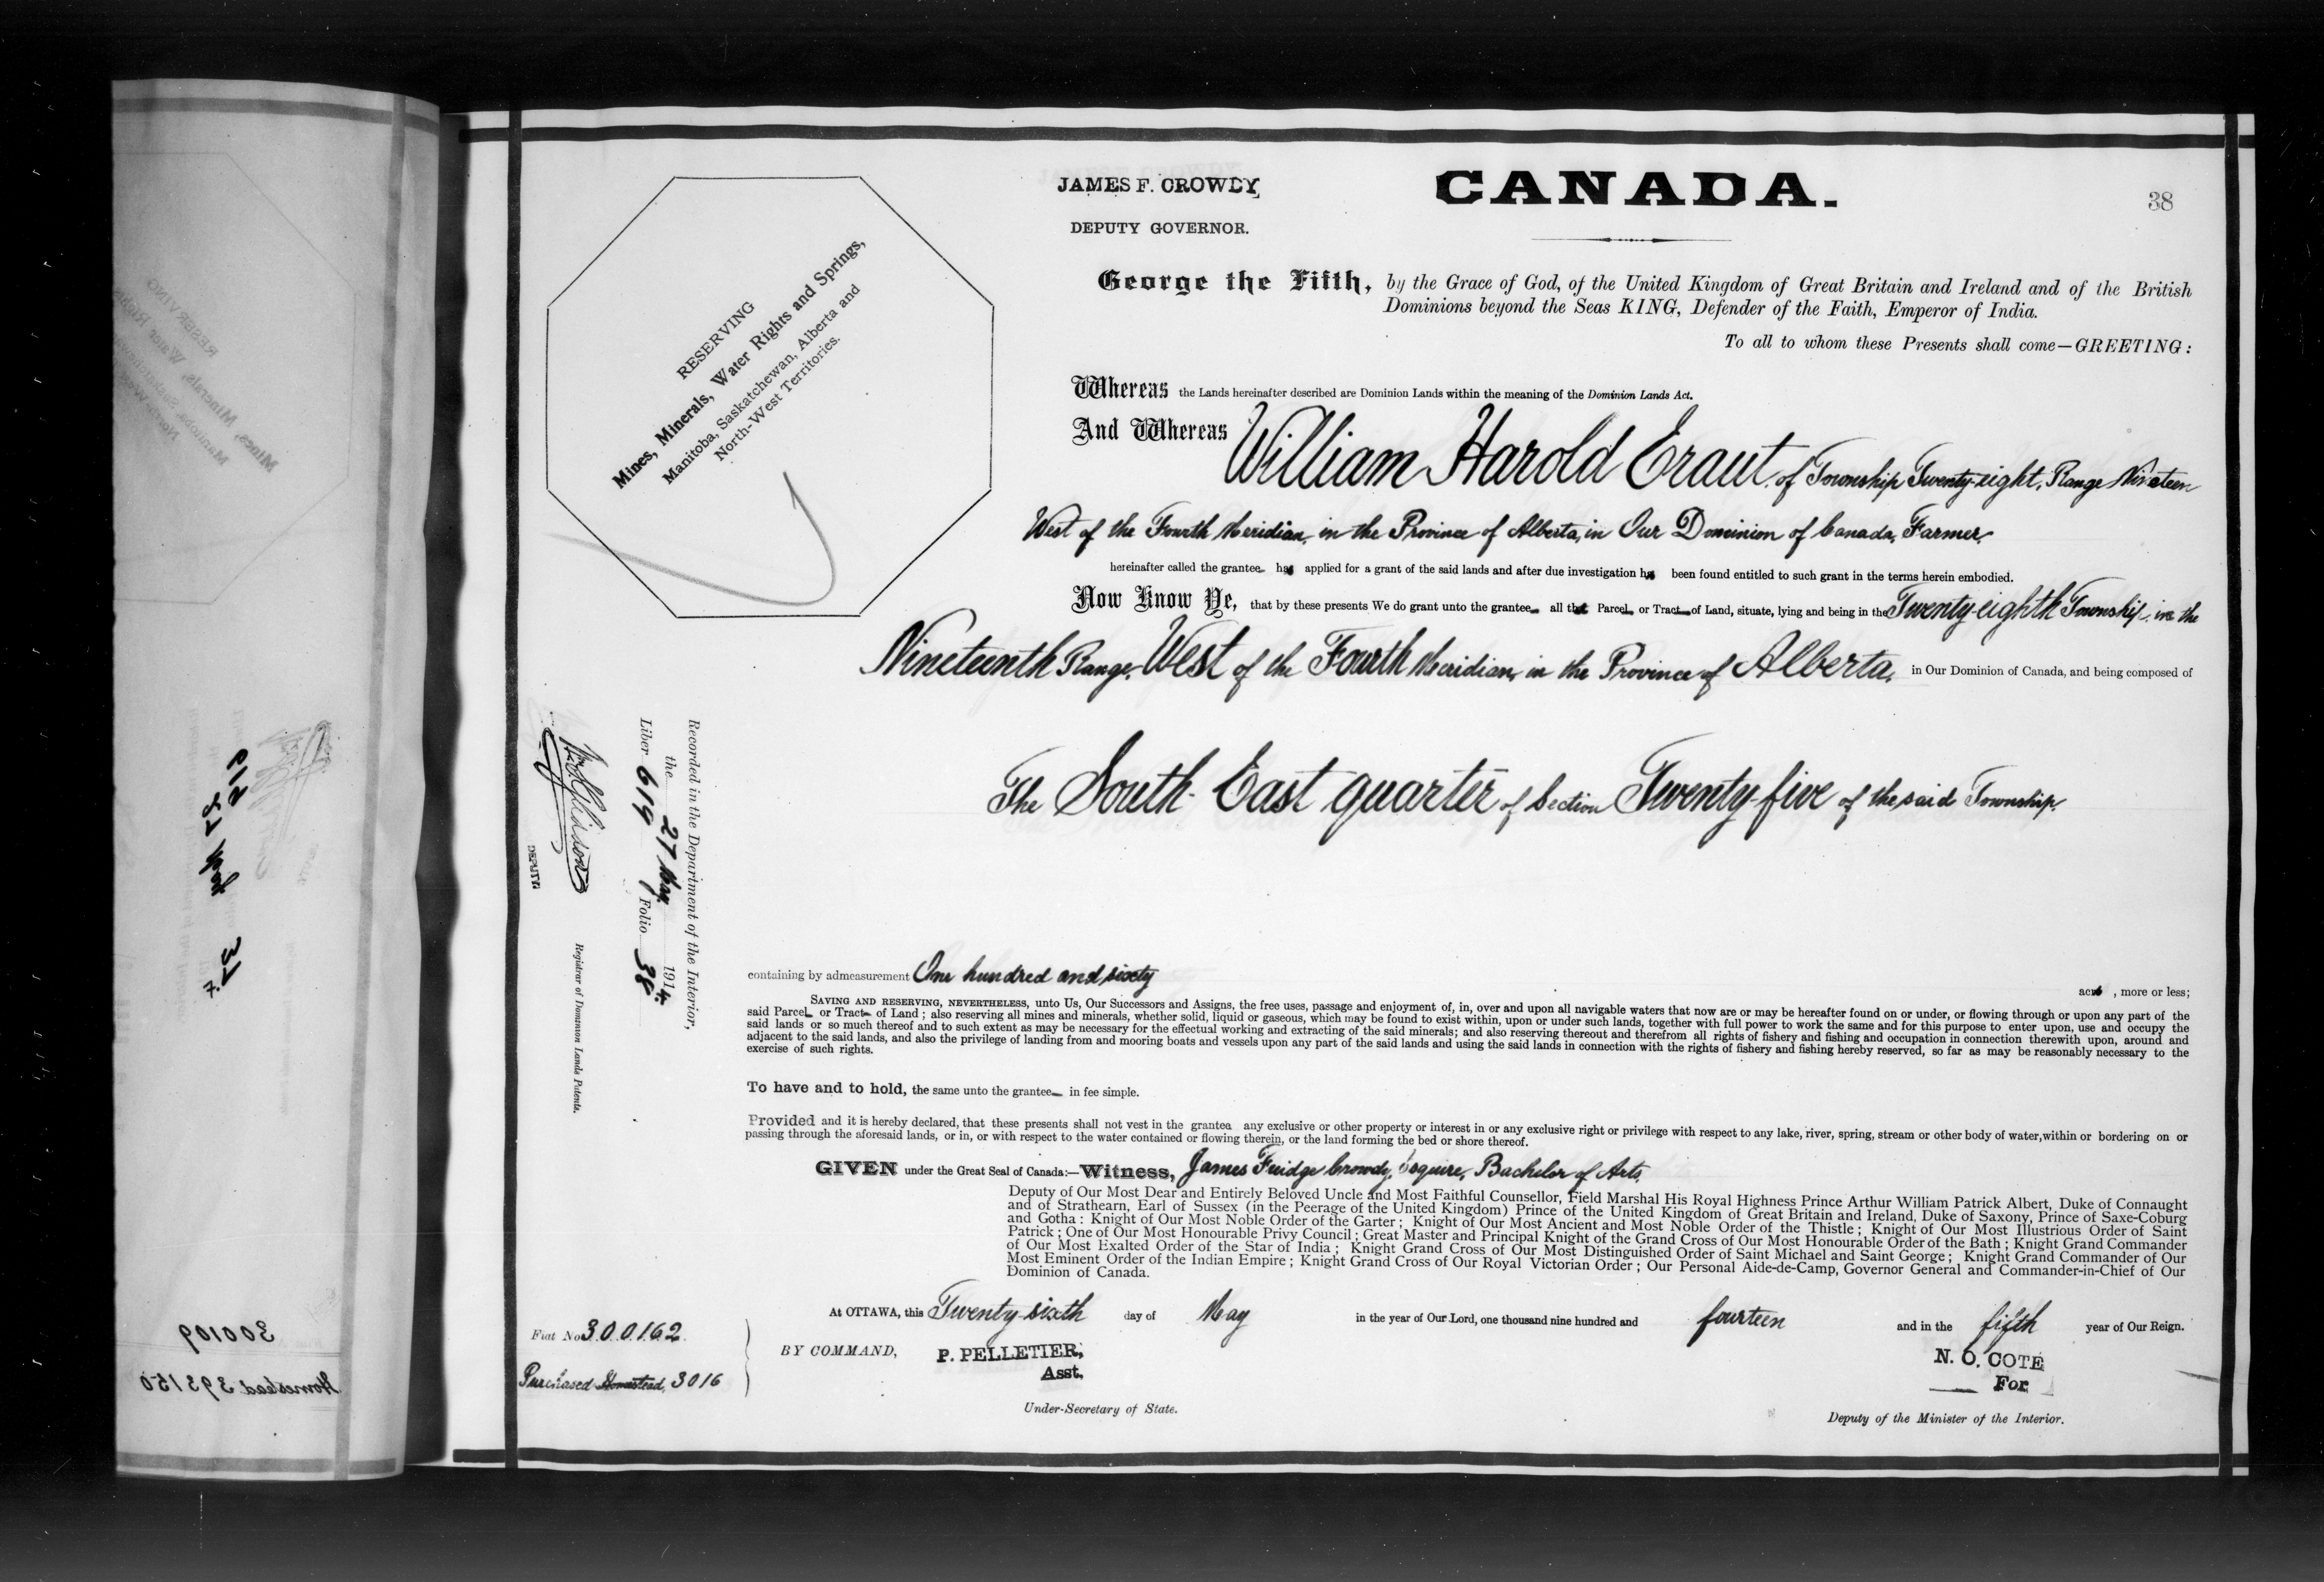 JAMES F. CROWDY
DEPUTY GOVERNOR.
CANADA.
38
RESERVING
Mines, Minerals, Water Rights and Springs,
Manitoba, Saskatchewan, Alberta and
North-West Territories.
George the Fifth, by the Grace of God, of the United Kingdom of Great Britain and Ireland and of the British
Dominions beyond the Seas KING, Defender of the Faith, Emperor of India.
To all to whom these Presents shall come—GREETING:
Whereas the Lands hereinafter described are Dominion Lands within the meaning of the Dominion Lands Act.
And Whereas William Harold Eraut of Township Twenty-eight, Range Nineteen
West of the Fourth Meridian, in the Province of Alberta, in Our Dominion of Canada, Farmer,
hereinafter called the grantee has applied for a grant of the said lands and after due investigation has been found entitled to such grant in the terms herein embodied.
Now Know Ye, that by these presents We do grant unto the grantee all that Parcel or Tract of Land, situate, lying and being in the Twenty-eighth Township, in the
Nineteenth Range, West of the Fourth Meridian, in the Province of Alberta, in Our Dominion of Canada, and being composed of
The South East quarter of Section Twenty-five of the said Township,
Recorded in the Department of the Interior,
the 27 May 1914.
Liber 619 Folio 38
DEPUTY
Registrar of Dominion Lands Patents.
containing by admeasurement One hundred and sixty
acres, more or less;
SAVING AND RESERVING, NEVERTHELESS, unto Us, Our Successors and Assigns, the free uses, passage and enjoyment of, in, over and upon all navigable waters that now are or may be hereafter found on or under, or flowing through or upon any part of the
said Parcel or Tract of Land; also reserving all mines and minerals, whether solid, liquid or gaseous, which may be found to exist within, upon or under such lands, together with full power to work the same and for this purpose to enter upon, use and occupy the
said lands or so much thereof and to such extent as may be necessary for the effectual working and extracting of the said minerals; and also reserving thereout and therefrom all rights of fishery and fishing and occupation in connection therewith upon, around and
adjacent to the said lands, and also the privilege of landing from and mooring boats and vessels upon any part of the said lands and using the said lands in connection with the rights of fishery and fishing hereby reserved, so far as may be reasonably necessary to the
exercise of such rights.
To have and to hold, the same unto the grantee in fee simple.
Provided and it is hereby declared, that these presents shall not vest in the grantee any exclusive or other property or interest in or any exclusive right or privilege with respect to any lake, river, spring, stream or other body of water, within or bordering on or
passing through the aforesaid lands, or in, or with respect to the water contained or flowing therein, or the land forming the bed or shore thereof.
GIVEN under the Great Seal of Canada:—Witness, James Fuidge Crowdy, Esquire, Bachelor of Arts,
Deputy of Our Most Dear and Entirely Beloved Uncle and Most Faithful Counsellor, Field Marshal His Royal Highness Prince Arthur William Patrick Albert, Duke of Connaught
and of Strathearn, Earl of Sussex (in the Peerage of the United Kingdom) Prince of the United Kingdom of Great Britain and Ireland, Duke of Saxony, Prince of Saxe-Coburg
and Gotha: Knight of Our Most Noble Order of the Garter; Knight of Our Most Ancient and Most Noble Order of the Thistle; Knight of Our Most Illustrious Order of Saint
Patrick; One of Our Most Honourable Privy Council; Great Master and Principal Knight of the Grand Cross of Our Most Honourable Order of the Bath; Knight Grand Commander
of Our Most Exalted Order of the Star of India; Knight Grand Cross of Our Most Distinguished Order of Saint Michael and Saint George; Knight Grand Commander of Our
Most Eminent Order of the Indian Empire; Knight Grand Cross of Our Royal Victorian Order; Our Personal Aide-de-Camp, Governor General and Commander-in-Chief of Our
Dominion of Canada.
At OTTAWA, this Twenty sixth day of May in the year of Our Lord, one thousand nine hundred and fourteen and in the fifth year of Our Reign.
Fiat No 300162.
Purchased Homestead, 3016
BY COMMAND, P. PELLETIER,
Asst.
Under-Secretary of State.
N. O. COTE
For
Deputy of the Minister of the Interior.
300109
Homestead 393150